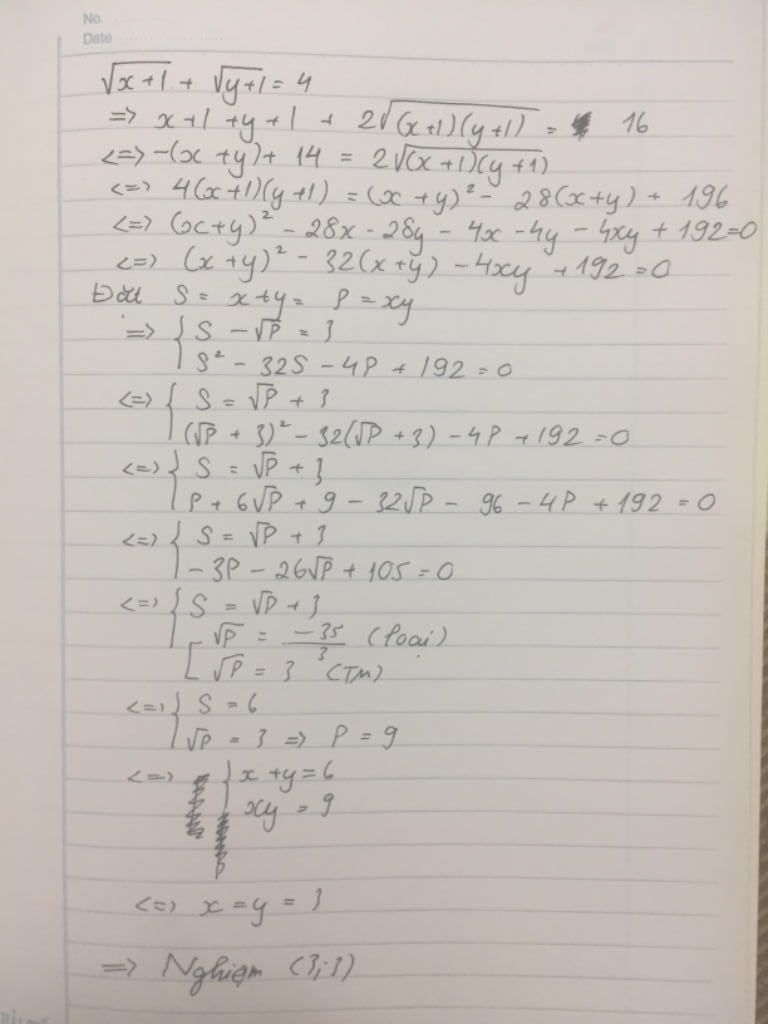 No.
Date
√(x+1) + √(y+1) = 4
=> x+1 + y+1 + 2√((x+1)(y+1)) = 16
<=> -(x+y) + 14 = 2√((x+1)(y+1))
<=> 4(x+1)(y+1) = (x+y)² - 28(x+y) + 196
<=> (x+y)² - 28x - 28y - 4x - 4y - 4xy + 192 = 0
<=> (x+y)² - 32(x+y) - 4xy + 192 = 0
Đặt S = x+y = P = xy
=> { S - √P = 3
S² - 32S - 4P + 192 = 0
<=> { S = √P + 3
(√P + 3)² - 32(√P + 3) - 4P + 192 = 0
<=> { S = √P + 3
P + 6√P + 9 - 32√P - 96 - 4P + 192 = 0
<=> { S = √P + 3
-3P - 26√P + 105 = 0
<=> { S = √P + 3
[ √P = -35/3 (loại)
√P = 3 (TM)
<=> { S = 6
√P = 3 => P = 9
<=> { x + y = 6
xy = 9
<=> x = y = 3
=> Nghiệm (3;3)